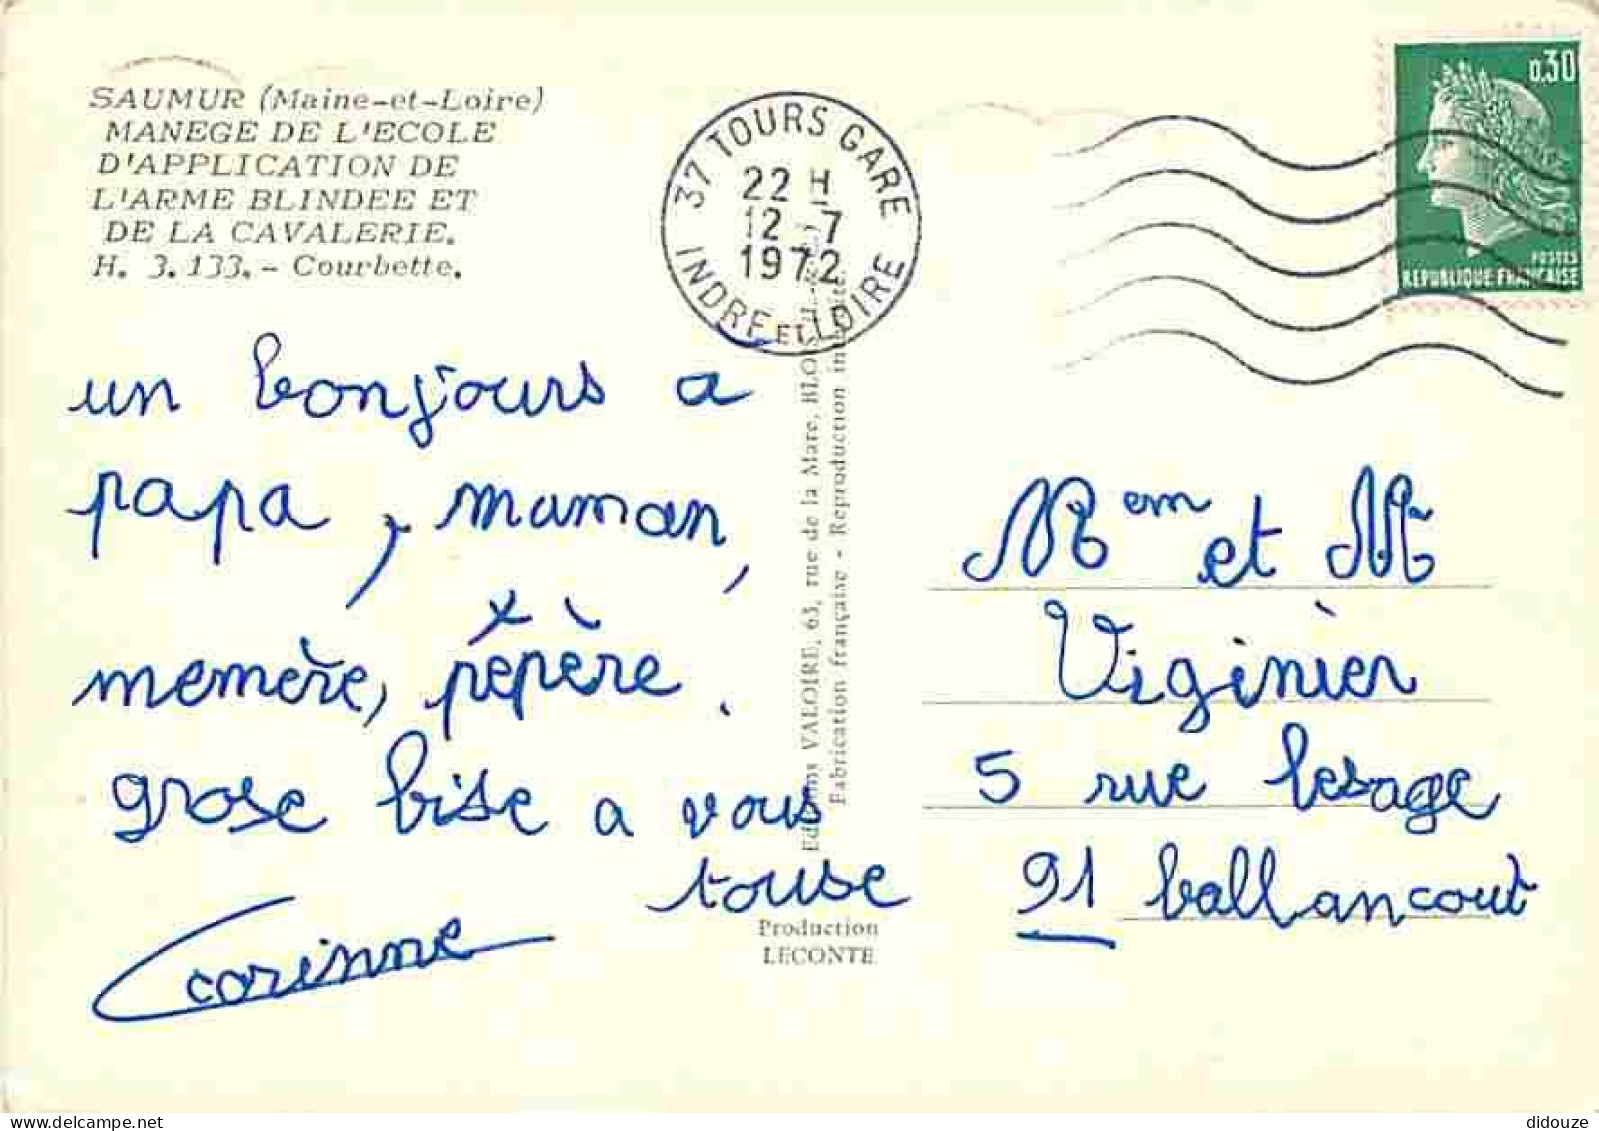 SAUMUR (Maine-et-Loire)
MANEGE DE L'ECOLE
D'APPLICATION DE
L'ARME BLINDEE ET
DE LA CAVALERIE.
H. 3.133. - Courbette.
37 TOURS GARE
22 H
12 -7
1972
INDRE ET LOIRE
0,30
POSTES
REPUBLIQUE FRANÇAISE
un bonjours a
papa, maman,
memère, pépère.
grose bise a vous
touse
corinne
Editions VALOIRE, 65, rue de la Mare, BLOIS
Fabrication française - Reproduction interdite
Production
LECONTE
Mem et Mr
Viginier
5 rue lesage
91 ballancout
delcampe.net
didouze